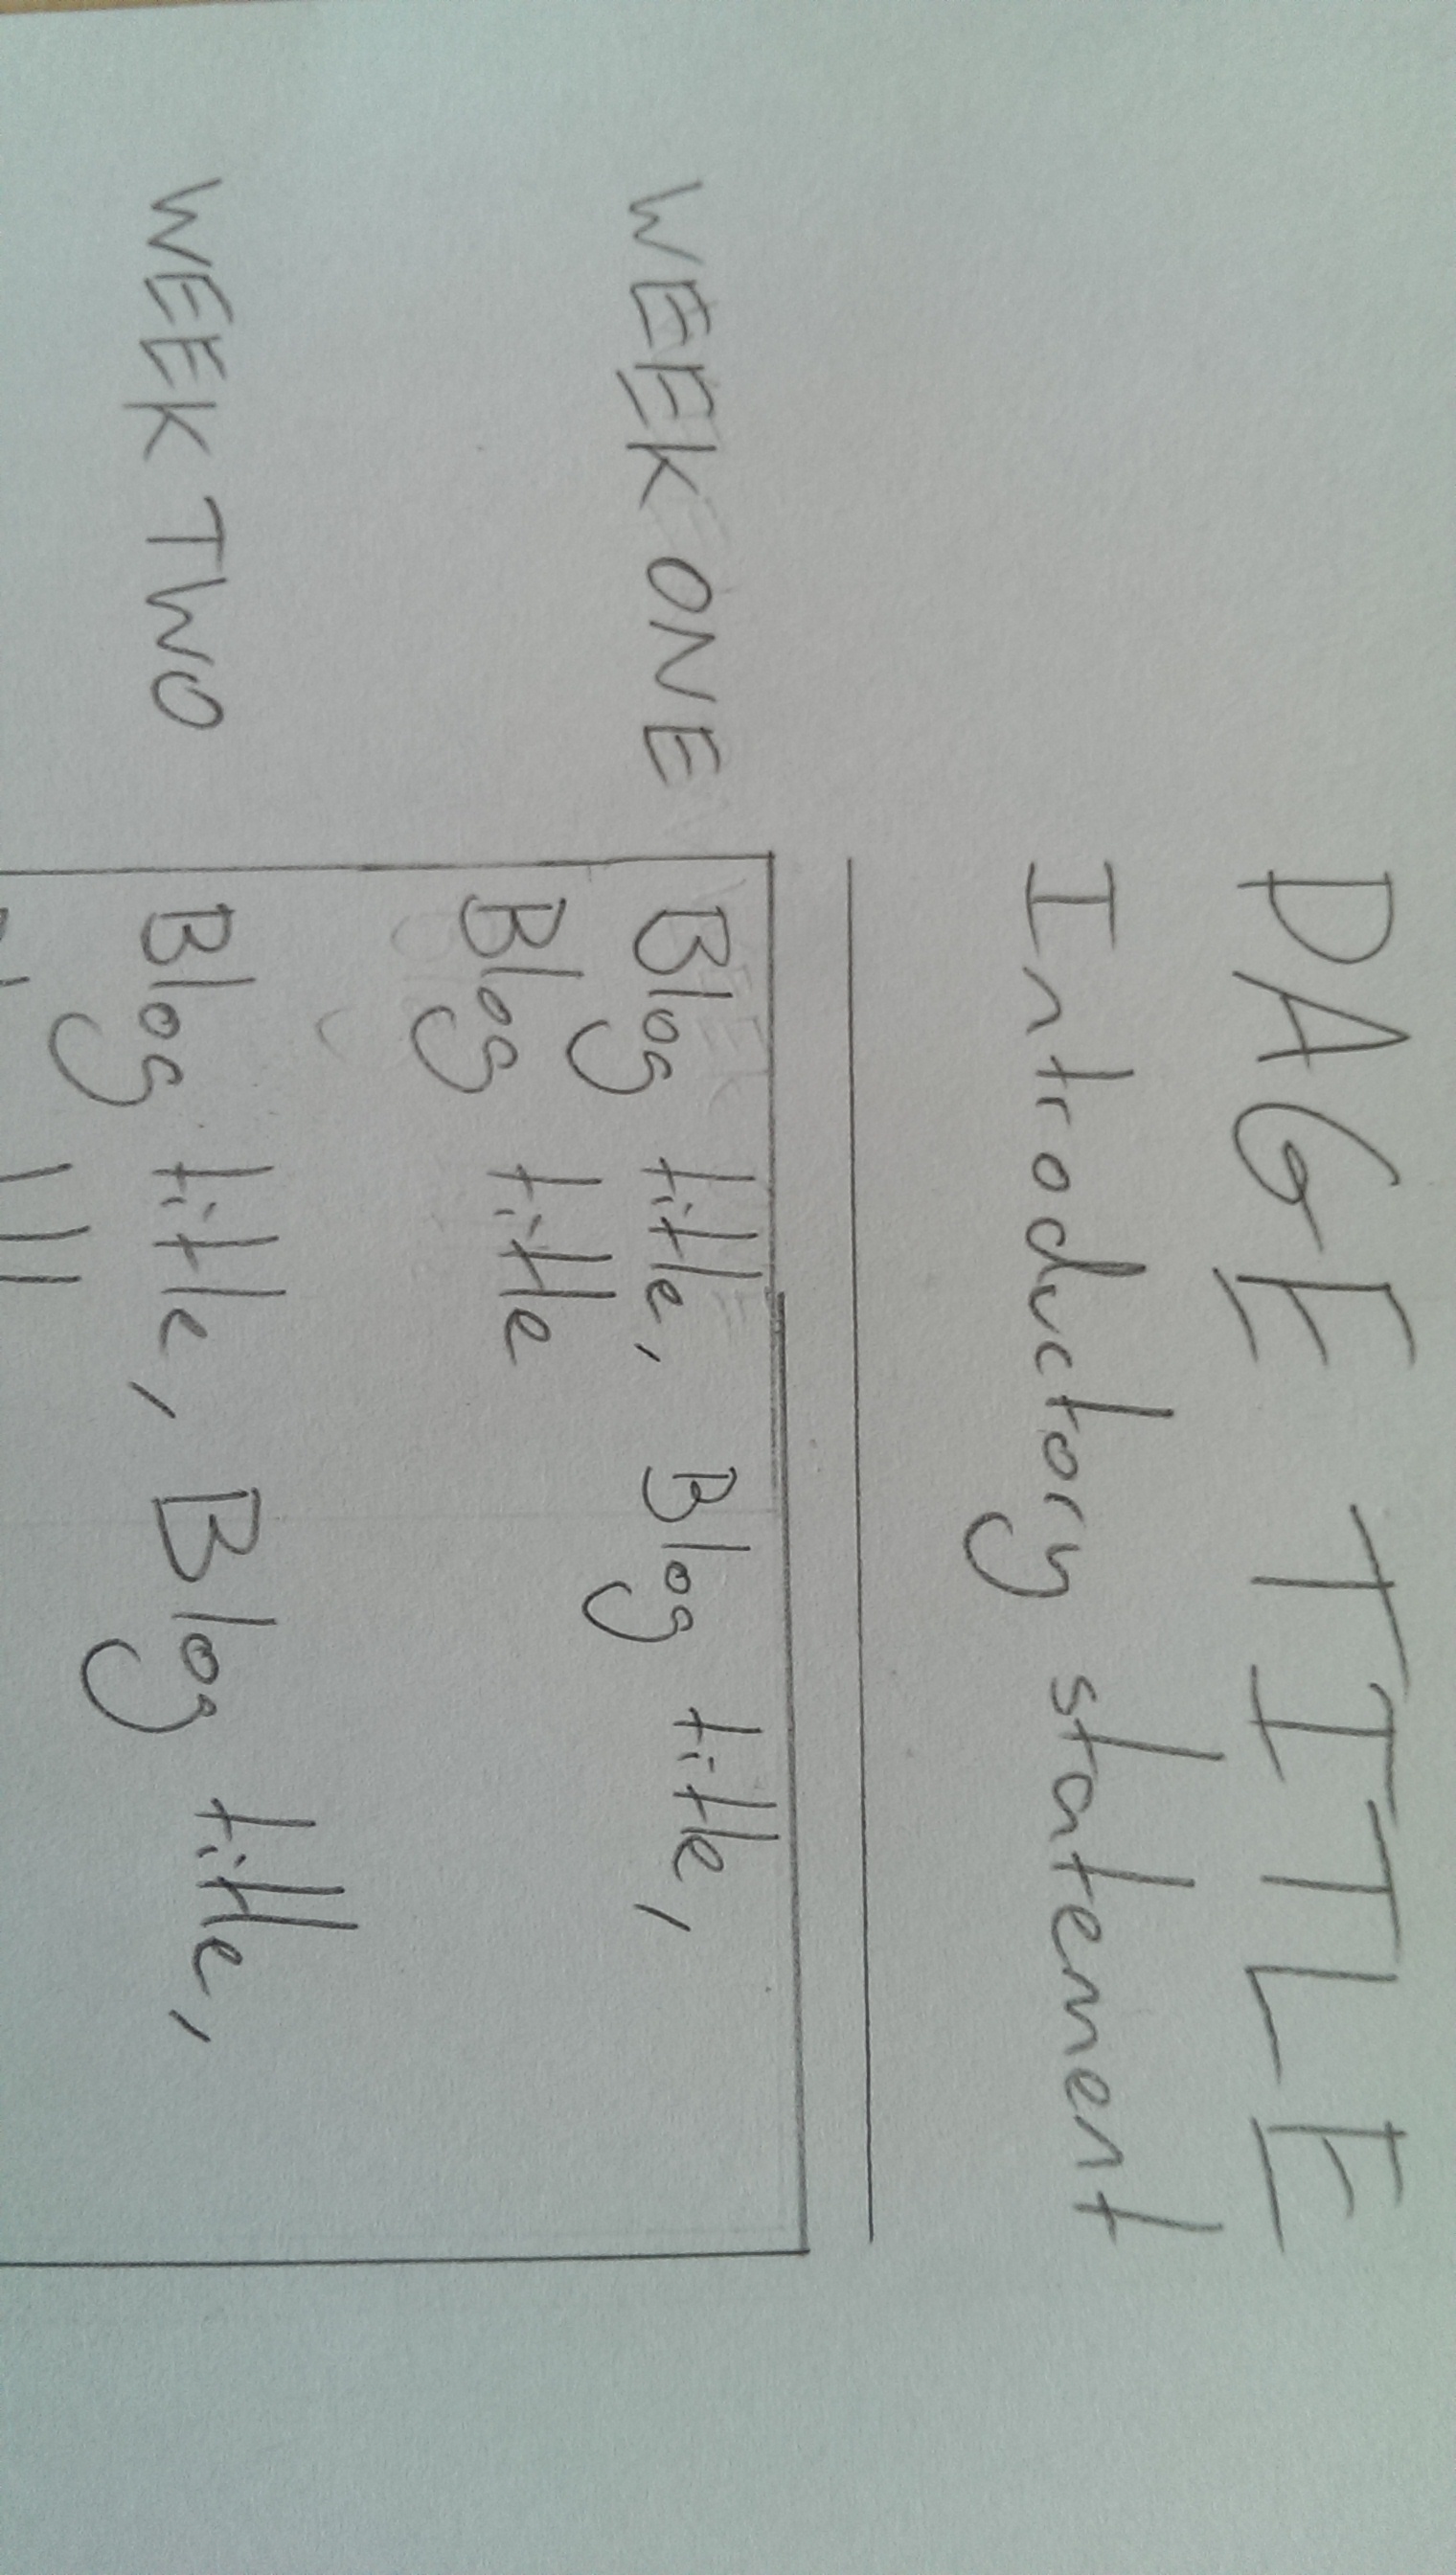 PAGE TITLE
Introductory statement
WEEK ONE
Blog title, Blog title,
Blog title
WEEK TWO
Blog title, Blog title,